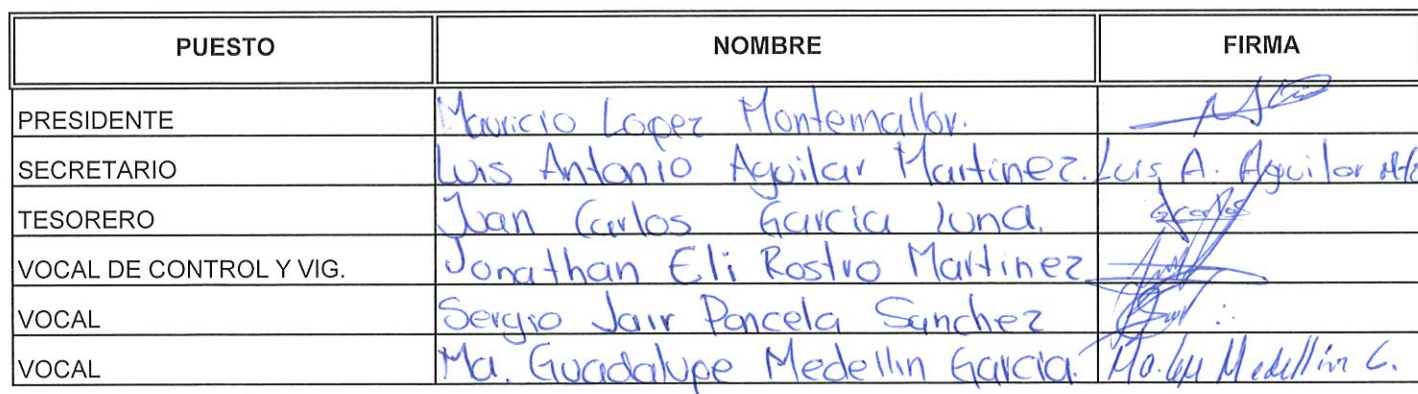 PUESTO NOMBRE FIRMA
PRESIDENTE Mauricio Lopez Montemallor.
SECRETARIO Luis Antonio Aguilar Martinez. Luis A. Aguilar Mtz
TESORERO Juan Carlos Garcia Luna.
VOCAL DE CONTROL Y VIG. Jonathan Eli Rostro Martinez
VOCAL Sergio Jair Poncela Sanchez
VOCAL Ma. Guadalupe Medellin Garcia. Ma. Medellin G.